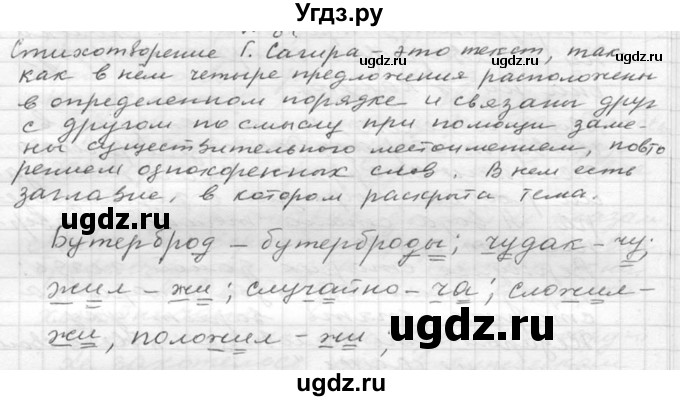 Угдз.ру
Стихотворение Г. Сагира – это текст, так
как в нём четыре предложения расположены
в определенном порядке и связаны друг
с другом по смыслу при помощи заме-
ны существительного местоимением, повто
рением однокоренных слов. В нем есть
заглавие, в котором раскрыта тема.
ugdz.ru
ugdz.ru
Бутерброд – бутерброды; чудак – чу;
ugdz.ru
жил – жи; случайно – ча; сложил –
ugdz.ru
жи, положил – жи;
ugdz.ru
ugdz.ru